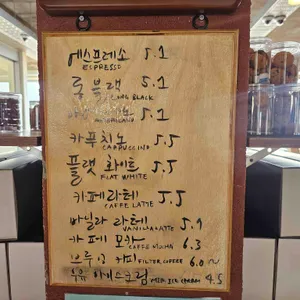 에스프레소 5.1
ESPRESSO
롱블랙 5.1
LONG BLACK
5.1
카푸치노 5.5
CAPPUCCINO
플랫 화이트 5.5
FLAT WHITE
카페라떼 5.5
CAFFE LATTE
바닐라 라떼 5.9
VANILLA LATTE
카페 모카 6.3
CAFFE MOCHA
브루잉 커피 FILTER COFFEE 6.0~
우유 아이스크림 MILK ICE CREAM 4.5